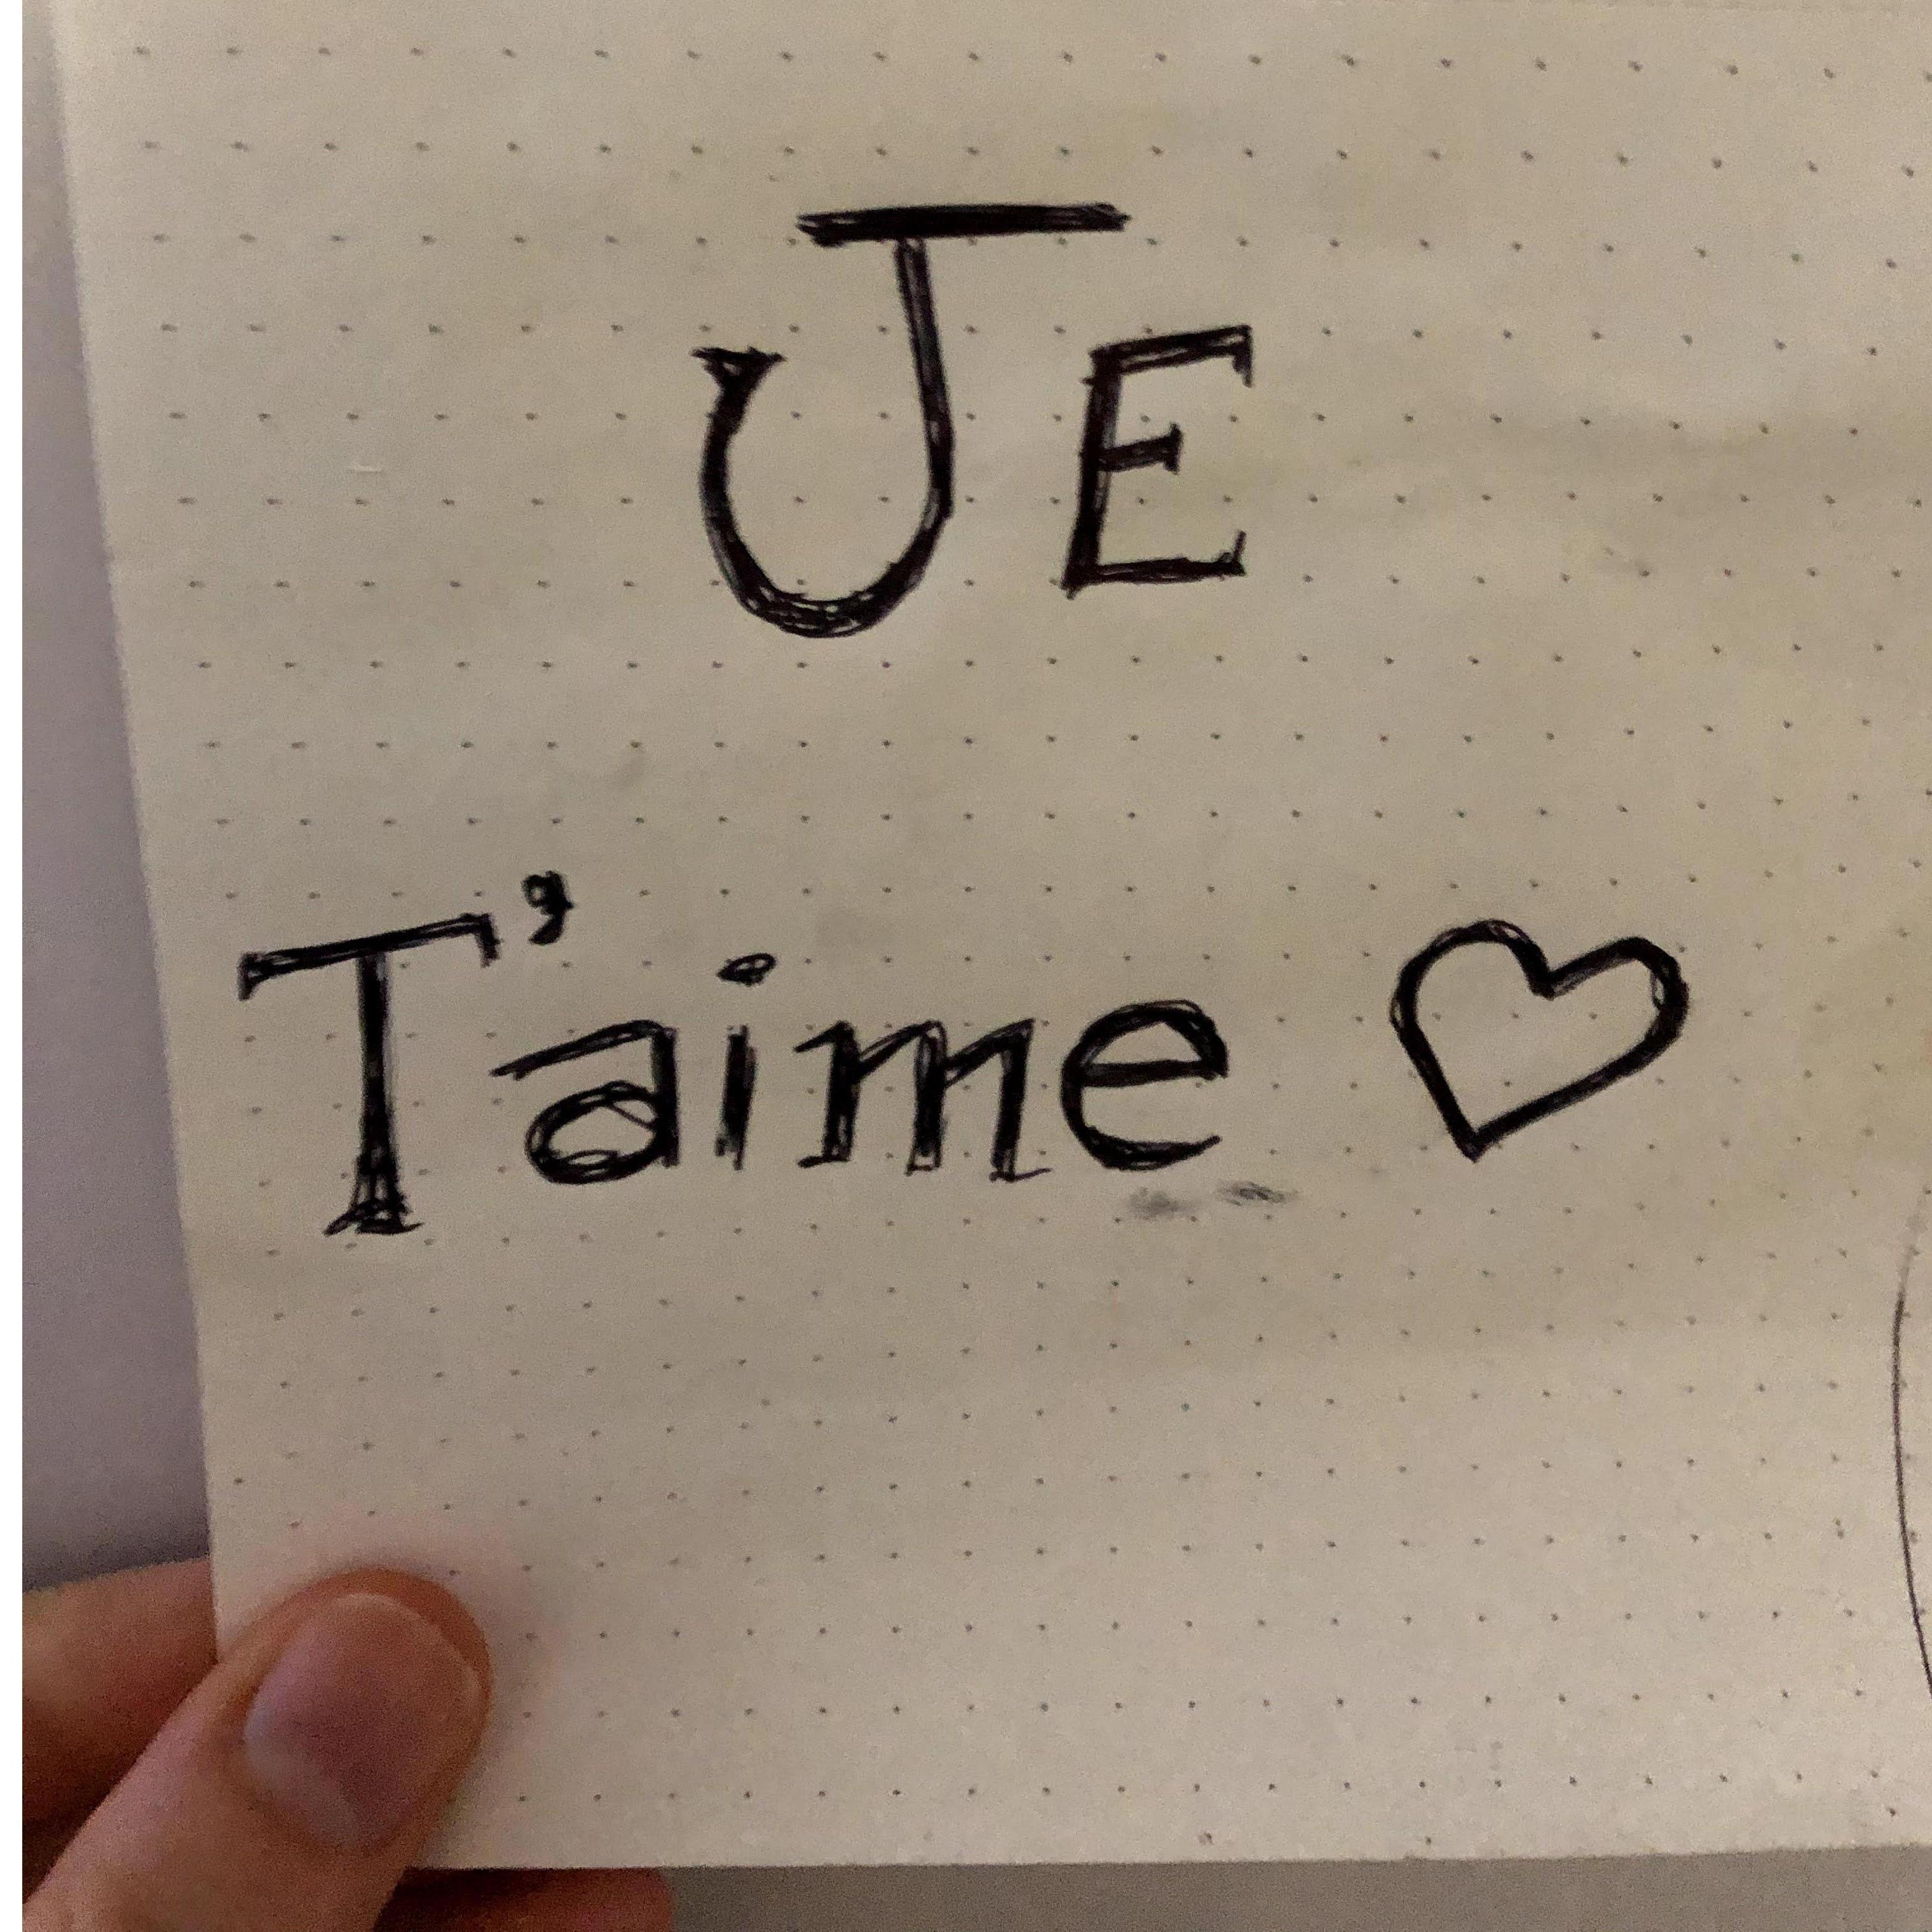 JE
T'aime ♡